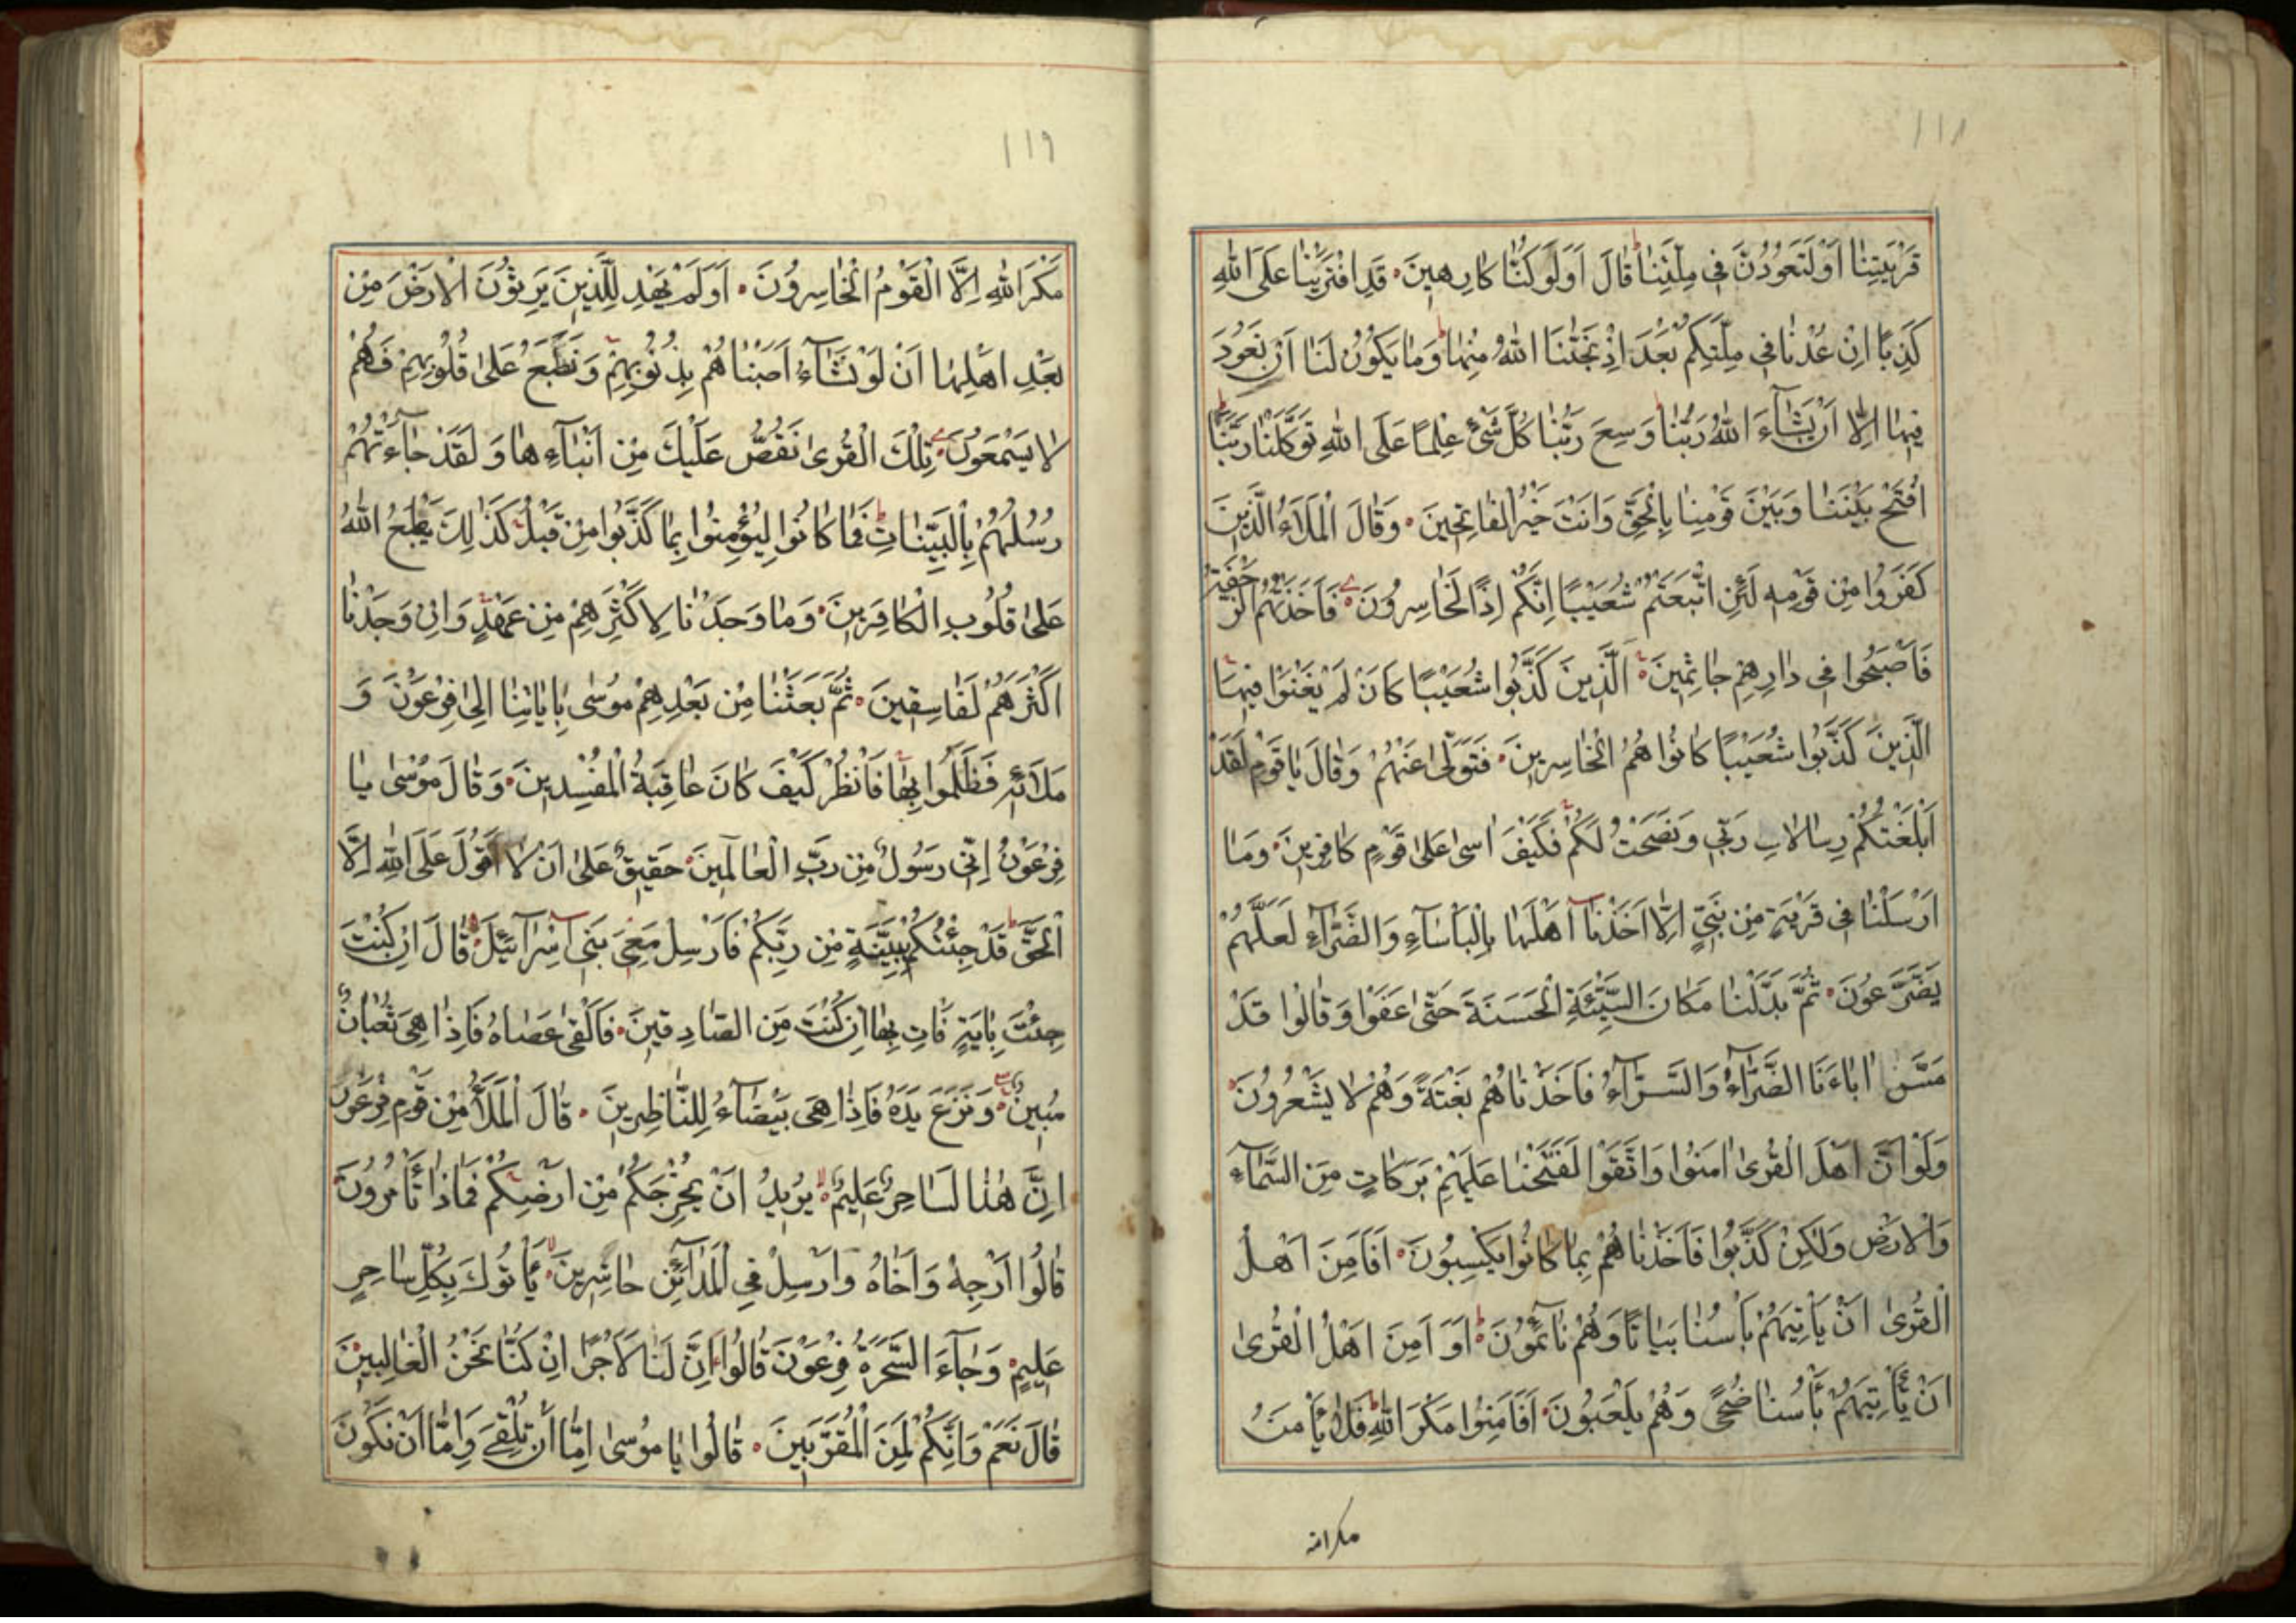 ١١٨
قَرْيَتِنَا اَوْ لَتَعُودُنَّ فى مِلَّتِنَا قَالَ اَوَلَوْ كُنَّا كَارِهينَ قَدِ افْتَرَيْنَا عَلَى اللهِ
كَذِبًا اِنْ عُدْنَا فى مِلَّتِكُمْ بَعْدَ اِذْ نَجّٰينَا اللهُ مِنْهَا وَمَا يَكُونُ لَنَا اَنْ نَعُودَ
فيهَا اِلَّا اَنْ يَشَآءَ اللهُ رَبُّنَا وَسِعَ رَبُّنَا كُلَّ شَىْءٍ عِلْمًا عَلَى اللهِ تَوَكَّلْنَا رَبَّنَا
افْتَحْ بَيْنَنَا وَبَيْنَ قَوْمِنَا بِالْحَقِّ وَاَنْتَ خَيْرُ الْفَاتِحينَ وَقَالَ الْمَلَاُ الَّذينَ
كَفَرُوا مِنْ قَوْمِه لَئِنِ اتَّبَعْتُمْ شُعَيْبًا اِنَّكُمْ اِذًا لَخَاسِرُونَ فَاَخَذَتْهُمُ الرَّجْفَةُ
فَاَصْبَحُوا فى دَارِهِمْ جَاثِمينَ اَلَّذينَ كَذَّبُوا شُعَيْبًا كَاَنْ لَمْ يَغْنَوْا فيهَا
اَلَّذينَ كَذَّبُوا شُعَيْبًا كَانُوا هُمُ الْخَاسِرينَ فَتَوَلّٰى عَنْهُمْ وَقَالَ يَا قَوْمِ لَقَدْ
اَبْلَغْتُكُمْ رِسَالَاتِ رَبّى وَنَصَحْتُ لَكُمْ فَكَيْفَ اٰسٰى عَلٰى قَوْمٍ كَافِرينَ وَمَا
اَرْسَلْنَا فى قَرْيَةٍ مِنْ نَبِىٍّ اِلَّا اَخَذْنَآ اَهْلَهَا بِالْبَاْسَآءِ وَالضَّرَّآءِ لَعَلَّهُمْ
يَضَّرَّعُونَ ثُمَّ بَدَّلْنَا مَكَانَ السَّيِّئَةِ الْحَسَنَةَ حَتّٰى عَفَوْا وَقَالُوا قَدْ
مَسَّ اٰبَاءَنَا الضَّرَّآءُ وَالسَّرَّآءُ فَاَخَذْنَاهُمْ بَغْتَةً وَهُمْ لَا يَشْعُرُونَ
وَلَوْ اَنَّ اَهْلَ الْقُرٰى اٰمَنُوا وَاتَّقَوْا لَفَتَحْنَا عَلَيْهِمْ بَرَكَاتٍ مِنَ السَّمَآءِ
وَالْاَرْضِ وَلٰكِنْ كَذَّبُوا فَاَخَذْنَاهُمْ بِمَا كَانُوا يَكْسِبُونَ اَفَاَمِنَ اَهْلُ
الْقُرٰى اَنْ يَاْتِيَهُمْ بَاْسُنَا بَيَاتًا وَهُمْ نَآئِمُونَ اَوَ اَمِنَ اَهْلُ الْقُرٰى
اَنْ يَاْتِيَهُمْ بَاْسُنَا ضُحًى وَهُمْ يَلْعَبُونَ اَفَاَمِنُوا مَكْرَ اللهِ فَلَا يَاْمَنُ
مكر الله
١١٩
مَكْرَ اللهِ اِلَّا الْقَوْمُ الْخَاسِرُونَ اَوَلَمْ يَهْدِ لِلَّذينَ يَرِثُونَ الْاَرْضَ مِنْ
بَعْدِ اَهْلِهَا اَنْ لَوْ نَشَآءُ اَصَبْنَاهُمْ بِذُنُوبِهِمْ وَنَطْبَعُ عَلٰى قُلُوبِهِمْ فَهُمْ
لَا يَسْمَعُونَ تِلْكَ الْقُرٰى نَقُصُّ عَلَيْكَ مِنْ اَنْبَآءِهَا وَلَقَدْ جَآءَتْهُمْ
رُسُلُهُمْ بِالْبَيِّنَاتِ فَمَا كَانُوا لِيُؤْمِنُوا بِمَا كَذَّبُوا مِنْ قَبْلُ كَذٰلِكَ يَطْبَعُ اللهُ
عَلٰى قُلُوبِ الْكَافِرينَ وَمَا وَجَدْنَا لِاَكْثَرِهِمْ مِنْ عَهْدٍ وَاِنْ وَجَدْنَا
اَكْثَرَهُمْ لَفَاسِقينَ ثُمَّ بَعَثْنَا مِنْ بَعْدِهِمْ مُوسٰى بِاٰيَاتِنَا اِلٰى فِرْعَوْنَ وَ
مَلَائِه فَظَلَمُوا بِهَا فَانْظُرْ كَيْفَ كَانَ عَاقِبَةُ الْمُفْسِدينَ وَقَالَ مُوسٰى يَا
فِرْعَوْنُ اِنّى رَسُولٌ مِنْ رَبِّ الْعَالَمينَ حَقيقٌ عَلٰى اَنْ لَا اَقُولَ عَلَى اللهِ اِلَّا
الْحَقَّ قَدْ جِئْتُكُمْ بِبَيِّنَةٍ مِنْ رَبِّكُمْ فَاَرْسِلْ مَعِىَ بَنى اِسْرَآئيلَ قَالَ اِنْ كُنْتَ
جِئْتَ بِاٰيَةٍ فَاْتِ بِهَا اِنْ كُنْتَ مِنَ الصَّادِقينَ فَاَلْقٰى عَصَاهُ فَاِذَا هِىَ ثُعْبَانٌ
مُبينٌ وَنَزَعَ يَدَهُ فَاِذَا هِىَ بَيْضَآءُ لِلنَّاظِرينَ قَالَ الْمَلَاُ مِنْ قَوْمِ فِرْعَوْنَ
اِنَّ هٰذَا لَسَاحِرٌ عَليمٌ يُريدُ اَنْ يُخْرِجَكُمْ مِنْ اَرْضِكُمْ فَمَاذَا تَاْمُرُونَ
قَالُوا اَرْجِهْ وَاَخَاهُ وَاَرْسِلْ فِى الْمَدَآئِنِ حَاشِرينَ يَاْتُوكَ بِكُلِّ سَاحِرٍ
عَليمٍ وَجَآءَ السَّحَرَةُ فِرْعَوْنَ قَالُوا اِنَّ لَنَا لَاَجْرًا اِنْ كُنَّا نَحْنُ الْغَالِبينَ
قَالَ نَعَمْ وَاِنَّكُمْ لَمِنَ الْمُقَرَّبينَ قَالُوا يَا مُوسٰى اِمَّا اَنْ تُلْقِىَ وَاِمَّا اَنْ نَكُونَ